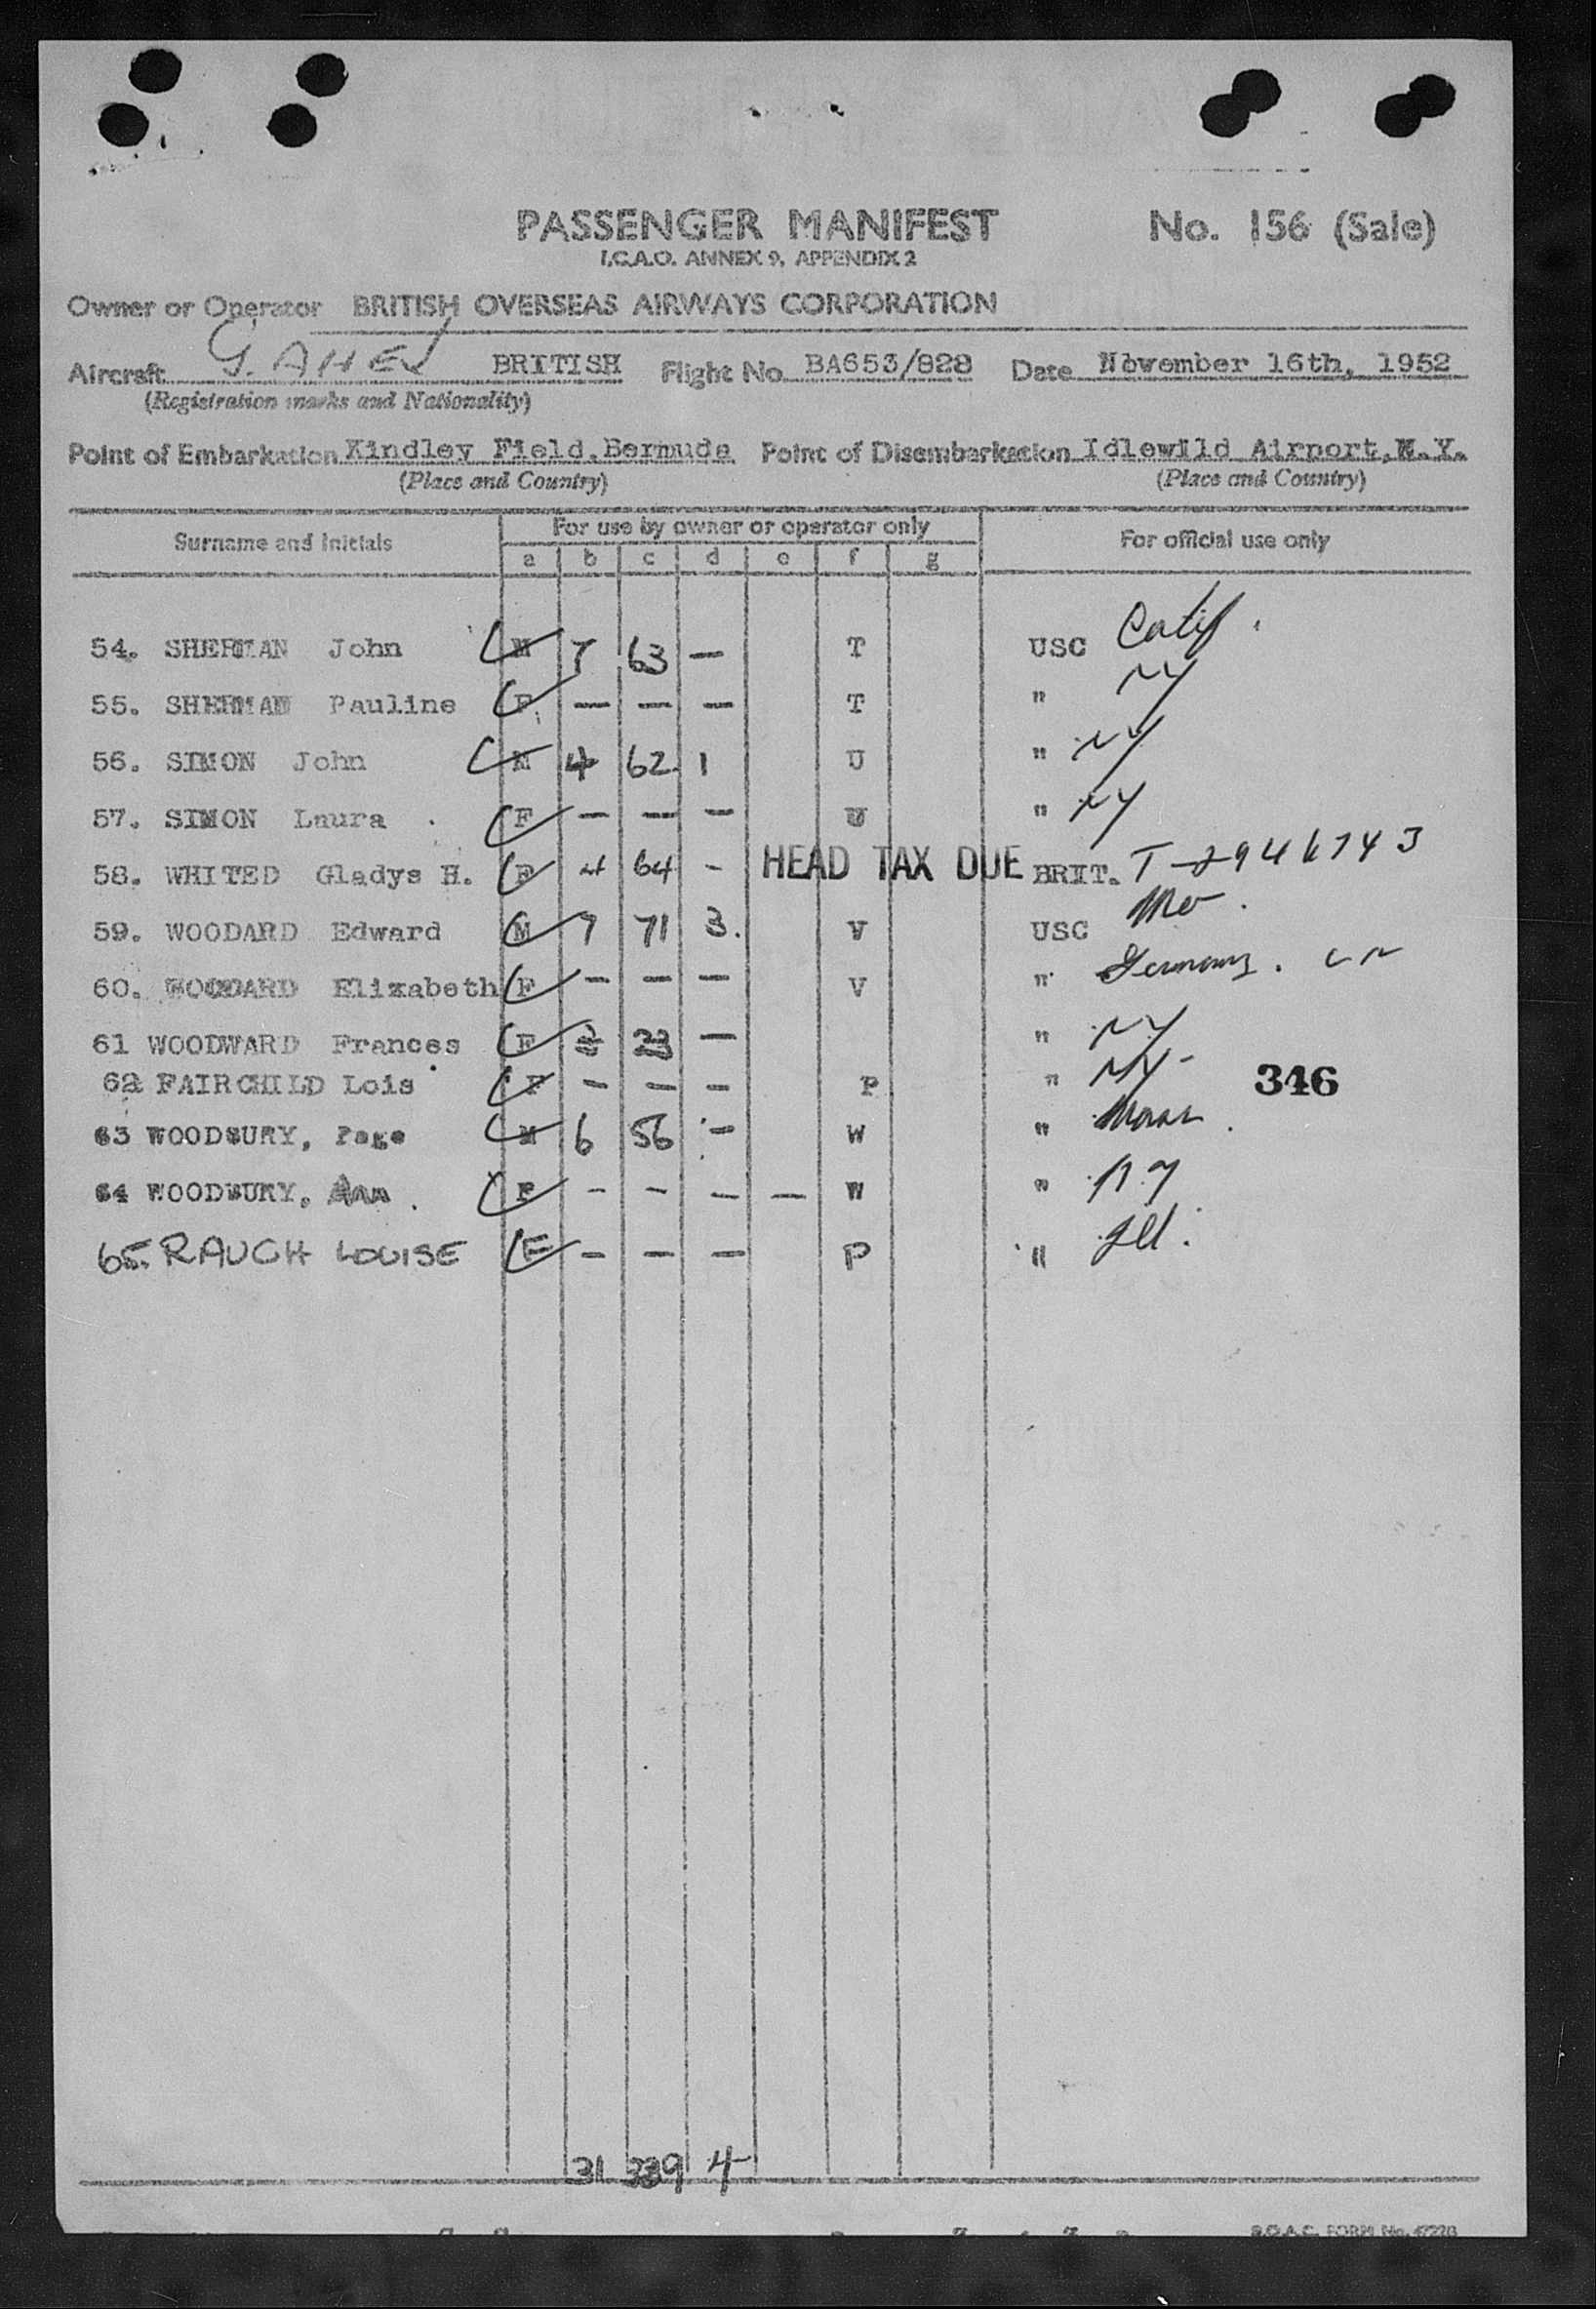 PASSENGER MANIFEST No. 156 (Sale)
I.C.A.O. ANNEX 9, APPENDIX 2
Owner or Operator BRITISH OVERSEAS AIRWAYS CORPORATION
Aircraft G. AHEJ BRITISH Flight No BA653/828 Date November 16th, 1952
(Registration marks and Nationality)
Point of Embarkation Kindley Field, Bermuda Point of Disembarkation Idlewild Airport, N.Y.
(Place and Country) (Place and Country)
Surname and Initials For use by owner or operator only For official use only
a b c d e f g
54. SHERMAN John M 7 63 — T USC Calif.
55. SHERMAN Pauline F — — — T " NY
56. SIMON John M 4 62 1 U " NY
57. SIMON Laura F — — — U " NY
58. WHITED Gladys H. F 4 64 - HEAD TAX DUE BRIT.
59. WOODARD Edward M 7 71 3. V USC Mo.
60. WOODARD Elizabeth F — — — V " Germany.
61 WOODWARD Frances F 3 23 — " NY
62 FAIRCHILD Lois F — — — P " NY 346
63 WOODBURY, Page M 6 56 — W " Mass.
64 WOODBURY, Ann F - - — — W " N.Y
65. RAUCH LOUISE F — — — P " Ill.
31 339 4
B.O.A.C. FORM No.